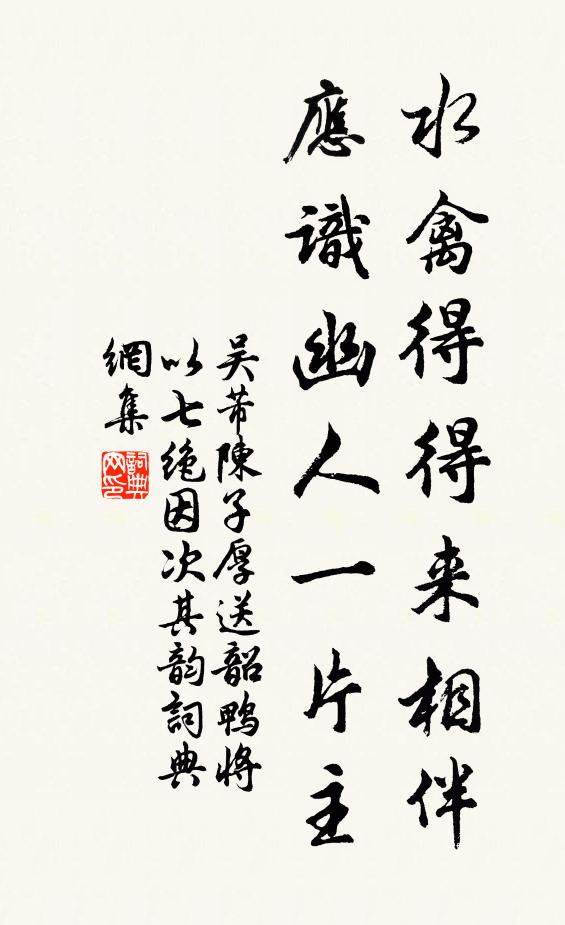 水禽得得来相伴
應識幽人一片主
吴芾陳子厚送韶鴨將
以七绝因次其韵詞典
網集
詞典網印